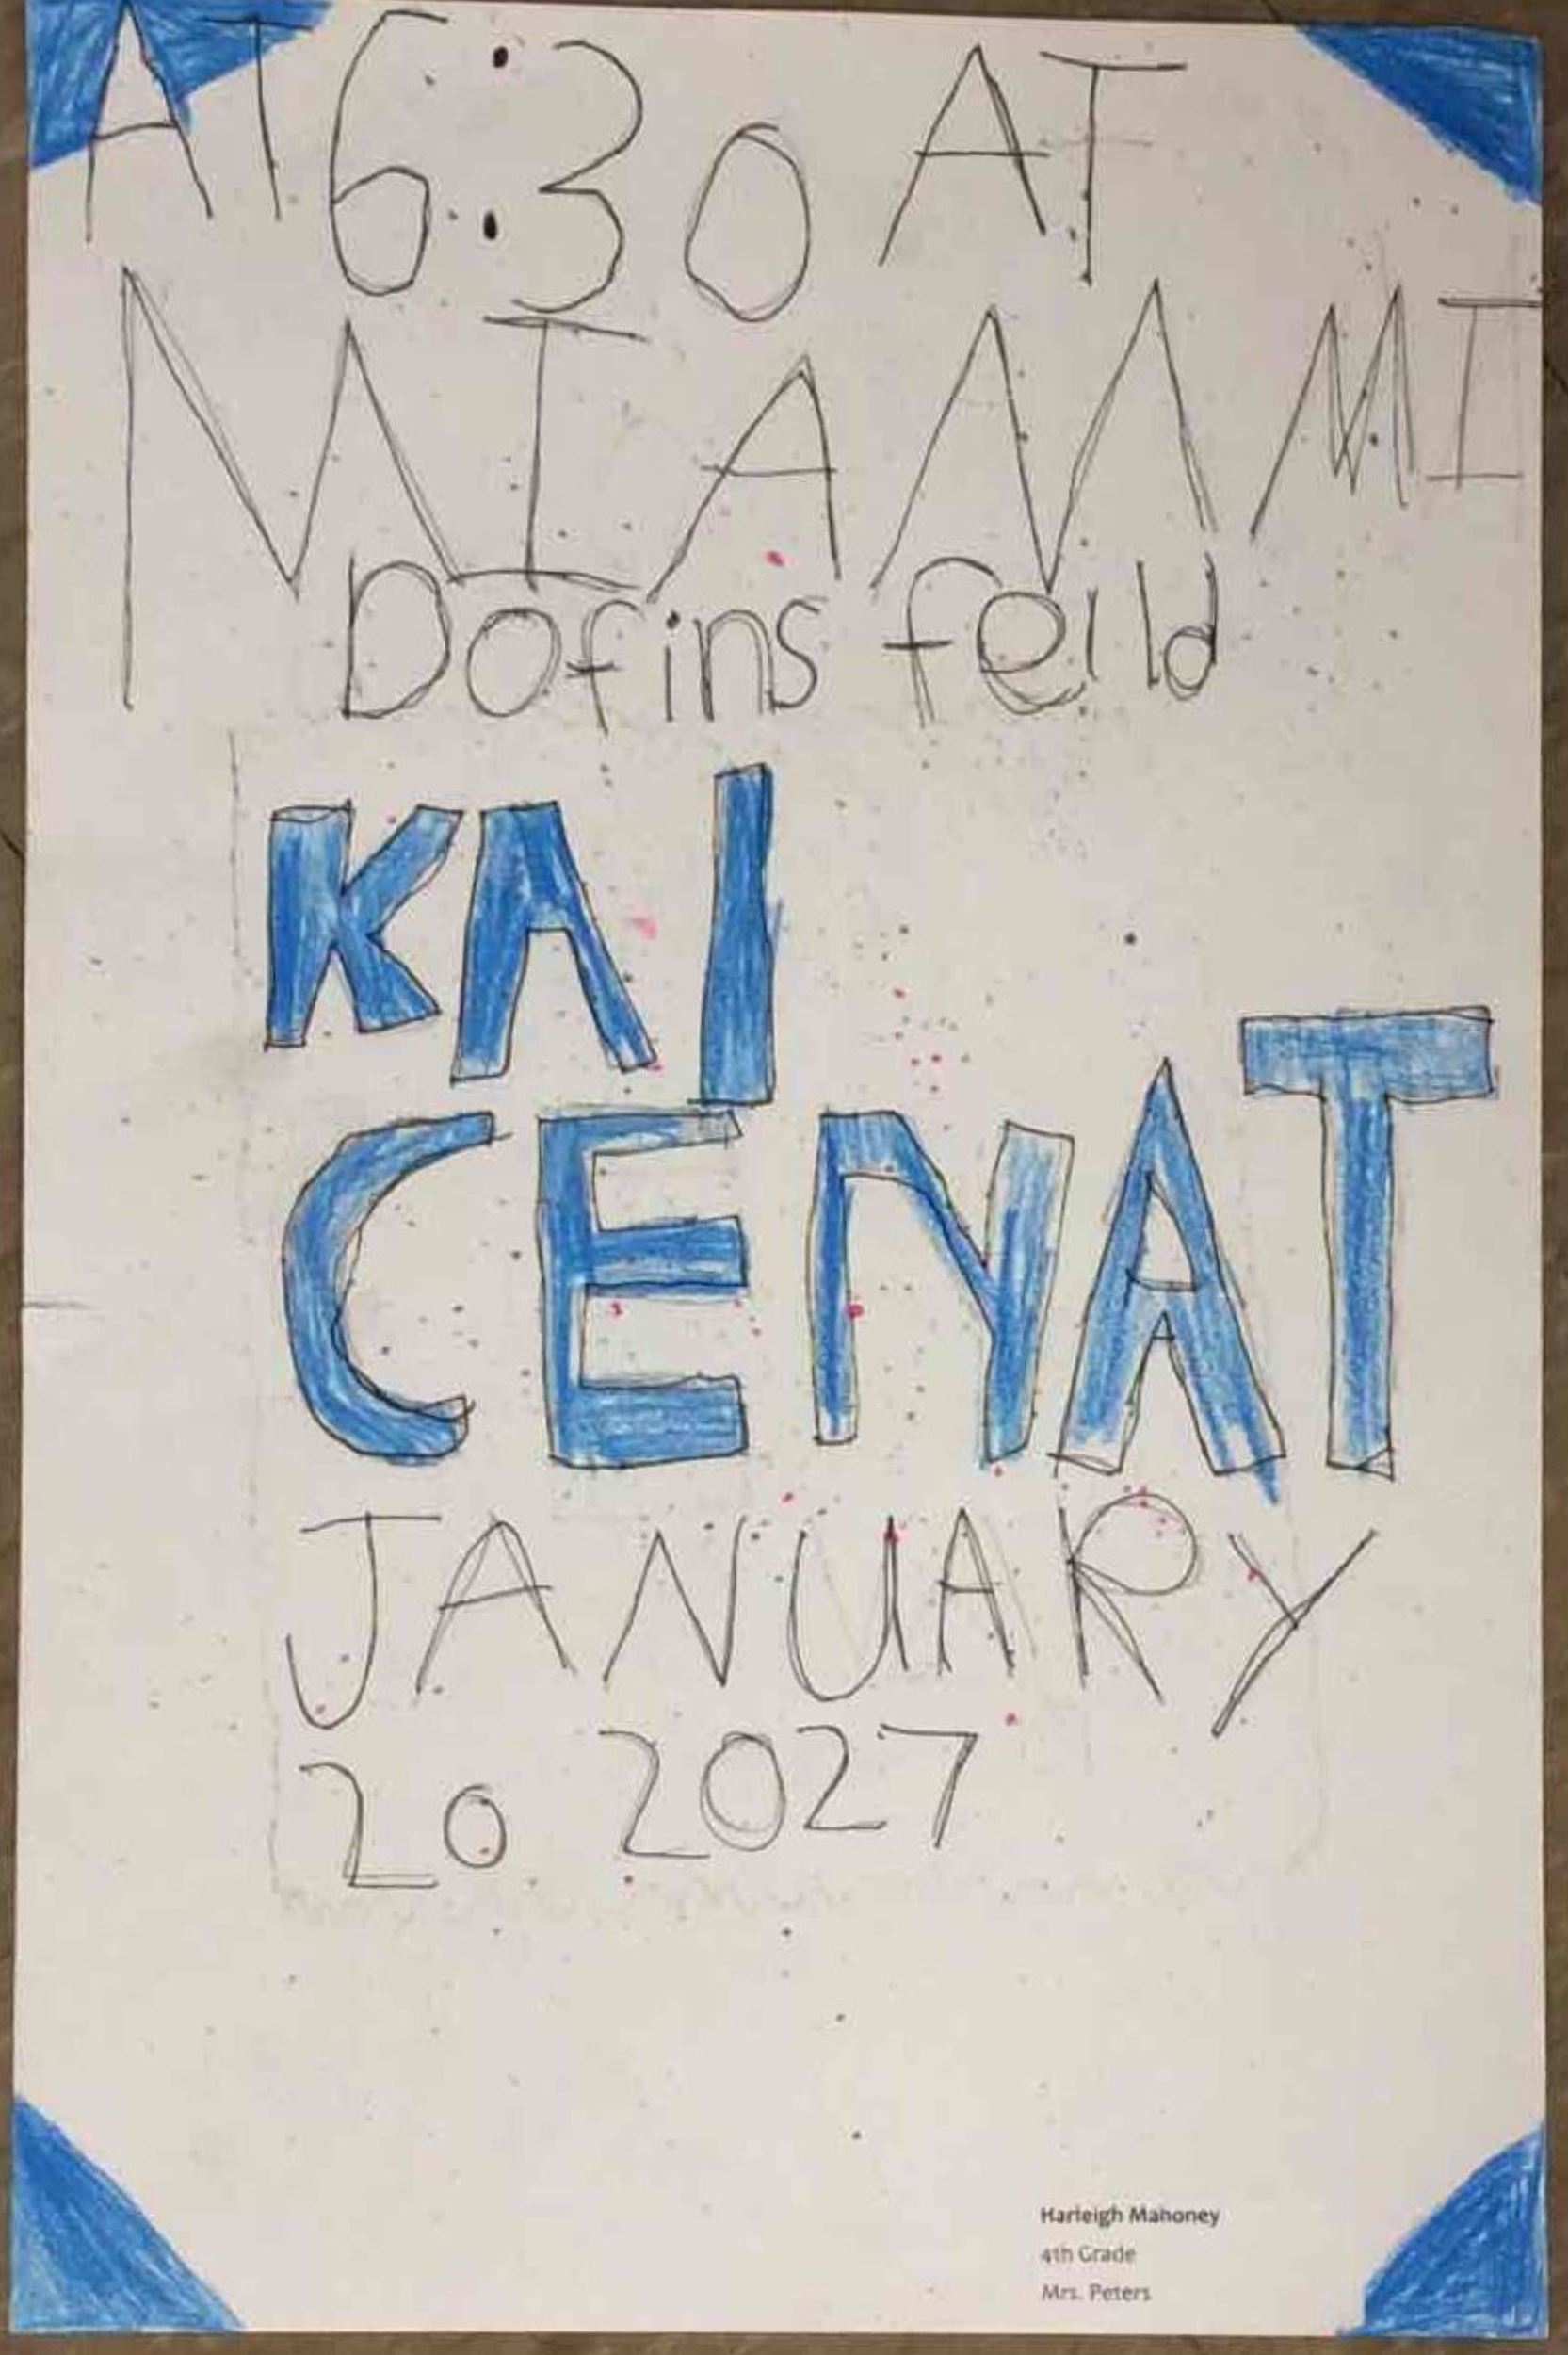 AT 6:30 AT
MIAMMI
Dofins feild
KAI
CENAT
JANUARY
20 2027
Harleigh Mahoney
4th Grade
Mrs. Peters